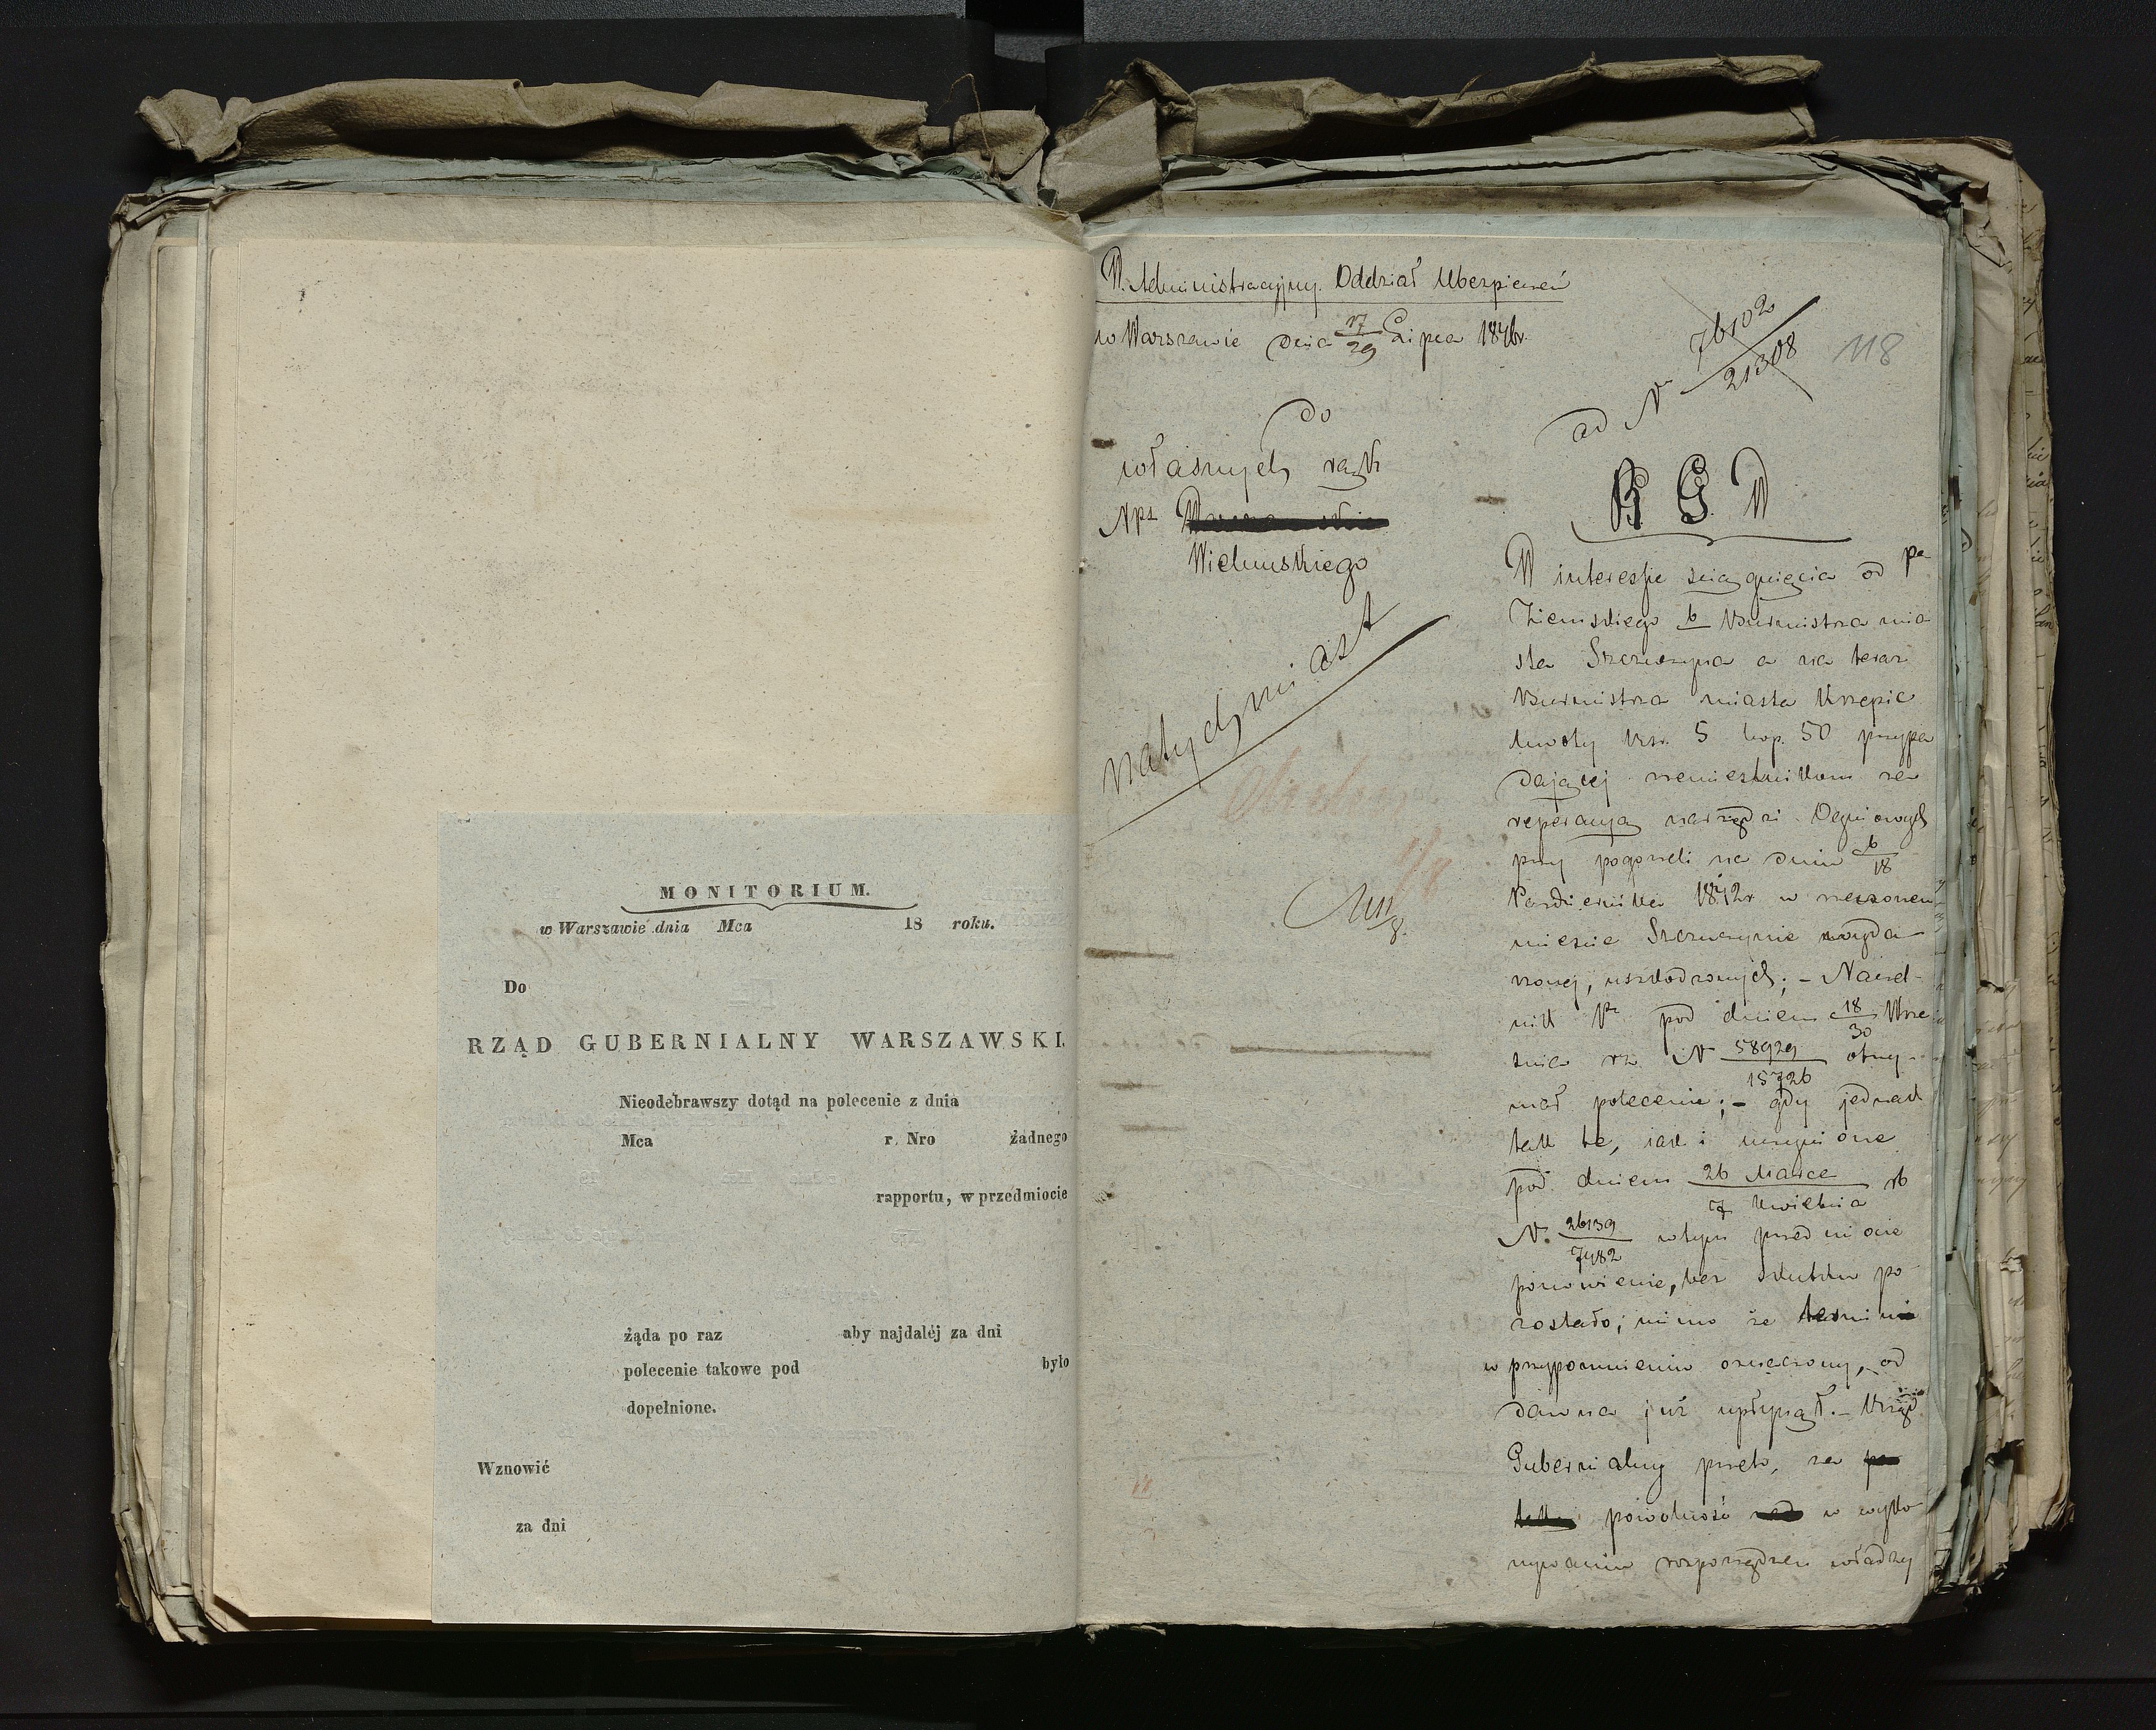 MONITORIUM.
w Warszawie dnia Mca 18 roku.
Do
RZĄD GUBERNIALNY WARSZAWSKI.
Nieodebrawszy dotąd na polecenie z dnia
Mca r. Nro żadnego
rapportu, w przedmiocie
żąda po raz aby najdaléj za dni
polecenie takowe pod było
dopełnione.
Wznowić
za dni
W. Administracyjny. Oddział Ubezpieczeń
w Warszawie dnia 17/29 Lipca 1846r.
118
ad N 76102/21308
Do
własnych rąk
Npa
Wieluńskiego
natychmiast
R G W
W interessie ściągnięcia od pa
Ziemskiego b Burmistrza mia
sta Szczercowa a na teraz
Burmistrza miasta Krzepic
kwoty Rsr. 5 kop. 50 przypa
dającej rzemieślnikom za
reperacyą narzędzi Ogniowych
przy pogorzeli na dniu 6/18
Października 1842r w rzeczonem
mieście Szczercowie wyda
rzonej, uszkodzonych; - Naczel-
nik Pu pod dniem 18/30 Wrze
śnia rz. N 58929/15726 otrzy-
mał polecenie; - gdy jednak
tak te, jak i uczynione
pod dniem 26 Marca/7 Kwietnia rb
N. 26139/7482 w tym przedmiocie
ponowienie, bez skutku po
zostało; mimo że termin
w przypomnieniu oznaczony, od
dawna już upłynął. - Rząd
Gubernialny przeto, za
powolność w wyko
nywaniu rozporządzeń władzy